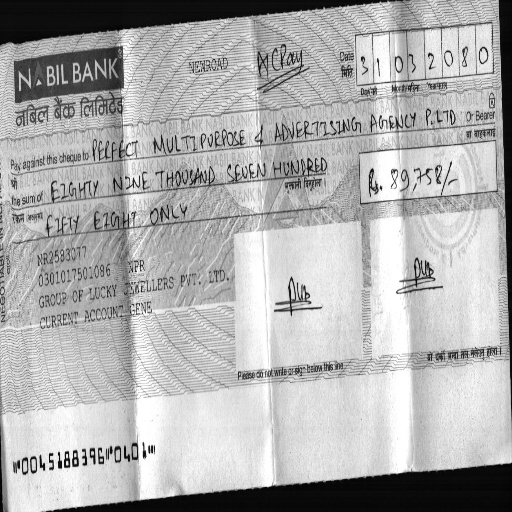 NABIL BANK
नबिल बैंक लिमिटेड
NEWROAD
A/C Pay
Date
मिति
3 1 0 3 2 0 8 0
Pay against this cheque to PERFECT MULTIPURPOSE & ADVERTISING AGENCY P. LTD Or Bearer
श्री
वा वाहकलाई
The sum of EIGHTY NINE THOUSAND SEVEN HUNDRED
FIFTY EIGHT ONLY
Rs. 89,758/-
NR2583077
0301017501086 NPR
GROUP OF LUCKY JEWELLERS PVT. LTD.
CURRENT ACCOUNT GENE
Please do not write or sign below this line
⑈0045188396⑈0401⑈